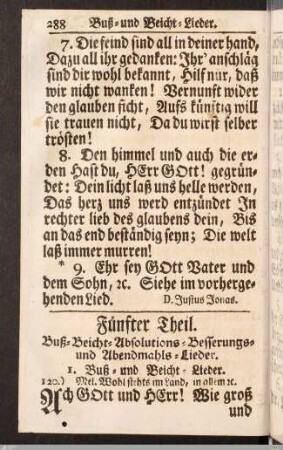 288 Buß- und Beicht-Lieder.
7. Die feind sind all in deiner hand,
Dazu all ihr gedanken: Ihr' anschläg
sind dir wohl bekannt, Hilf nur, daß
wir nicht wanken! Vernunft wider
den glauben ficht, Aufs künftig will
sie trauen nicht, Da du wirst selber
trösten!
8. Den himmel und auch die er-
den Hast du, HErr GOtt! gegrün-
det: Dein licht laß uns helle werden,
Das herz uns werd entzündet In
rechter lieb des glaubens dein, Bis
an das end beständig seyn; Die welt
laß immer murren!
* 9. Ehr sey GOtt Vater und
dem Sohn, ꝛc. Siehe im vorherge-
henden Lied. D. Justus Jonas.
Fünfter Theil.
Buß-Beicht-Absolutions-Besserungs-
und Abendmahls-Lieder.
1. Buß- und Beicht-Lieder.
120.) Mel. Wohl stehts im Land, in allem ꝛc.
Ach GOtt und HErr! Wie groß
und